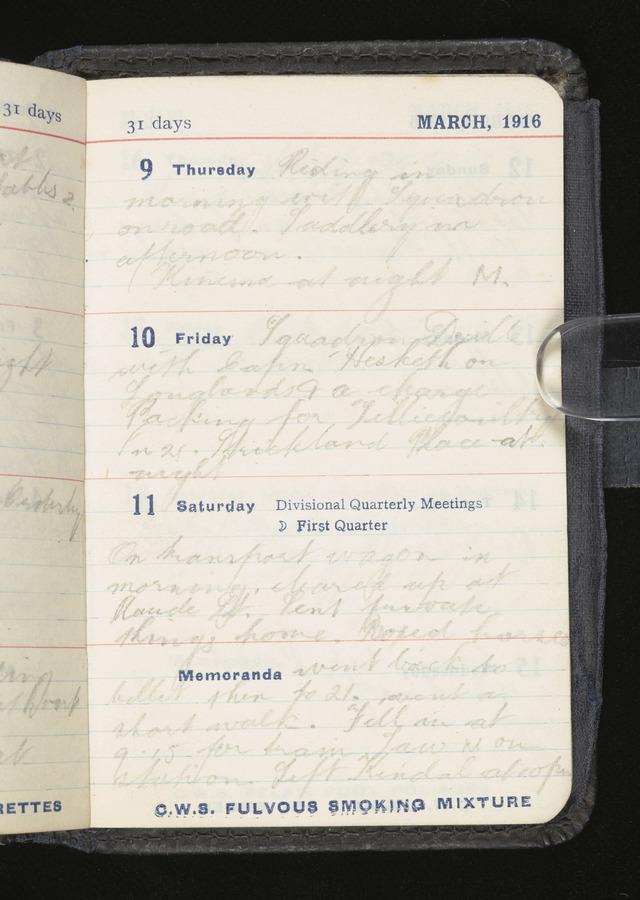 31 days
ables 2.
ght
Orderly
ing
at
RETTES
31 days MARCH, 1916
9 Thursday Riding in
morning with Squadron
on road. Saddlery in
afternoon.
Kinema at night M.
10 Friday Squadron Drill
with Capn Hesketh on
Longlands & a charge
Packing for
in 21. Strickland Place at
night
11 Saturday Divisional Quarterly Meetings
☽ First Quarter
On transport wagon in
morning, cleared up at
Aande St. Sent private
things home. Boxed horses
Memoranda went back to
billet then to 21. went a
short walk. Fell in at
9.15 for train Saw M on
station. Left Kendal at
C.W.S. FULVOUS SMOKING MIXTURE